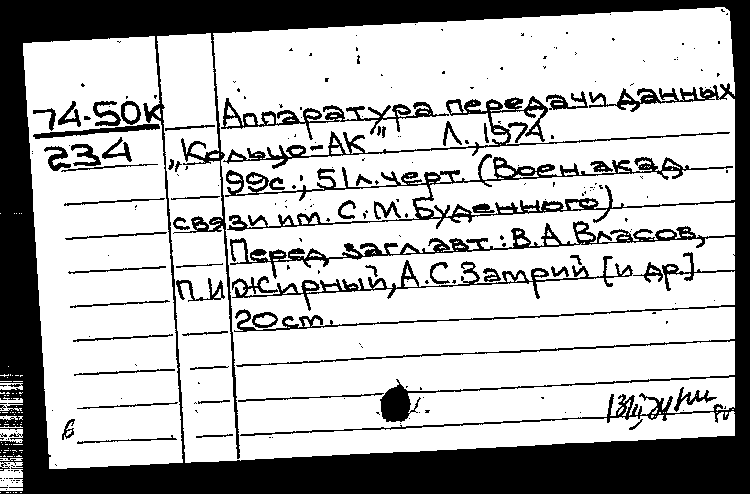 74-50к
234
Аппаратура передачи данных
„Кольцо-АК". Л., 1974.
99с.; 51л.черт. (Воен. акад.
связи им. С.М.Буденного).
Перед загл.авт.: В.А.Власов,
П.И Жирный, А.С.Затрий [и др.].
20 см.
в